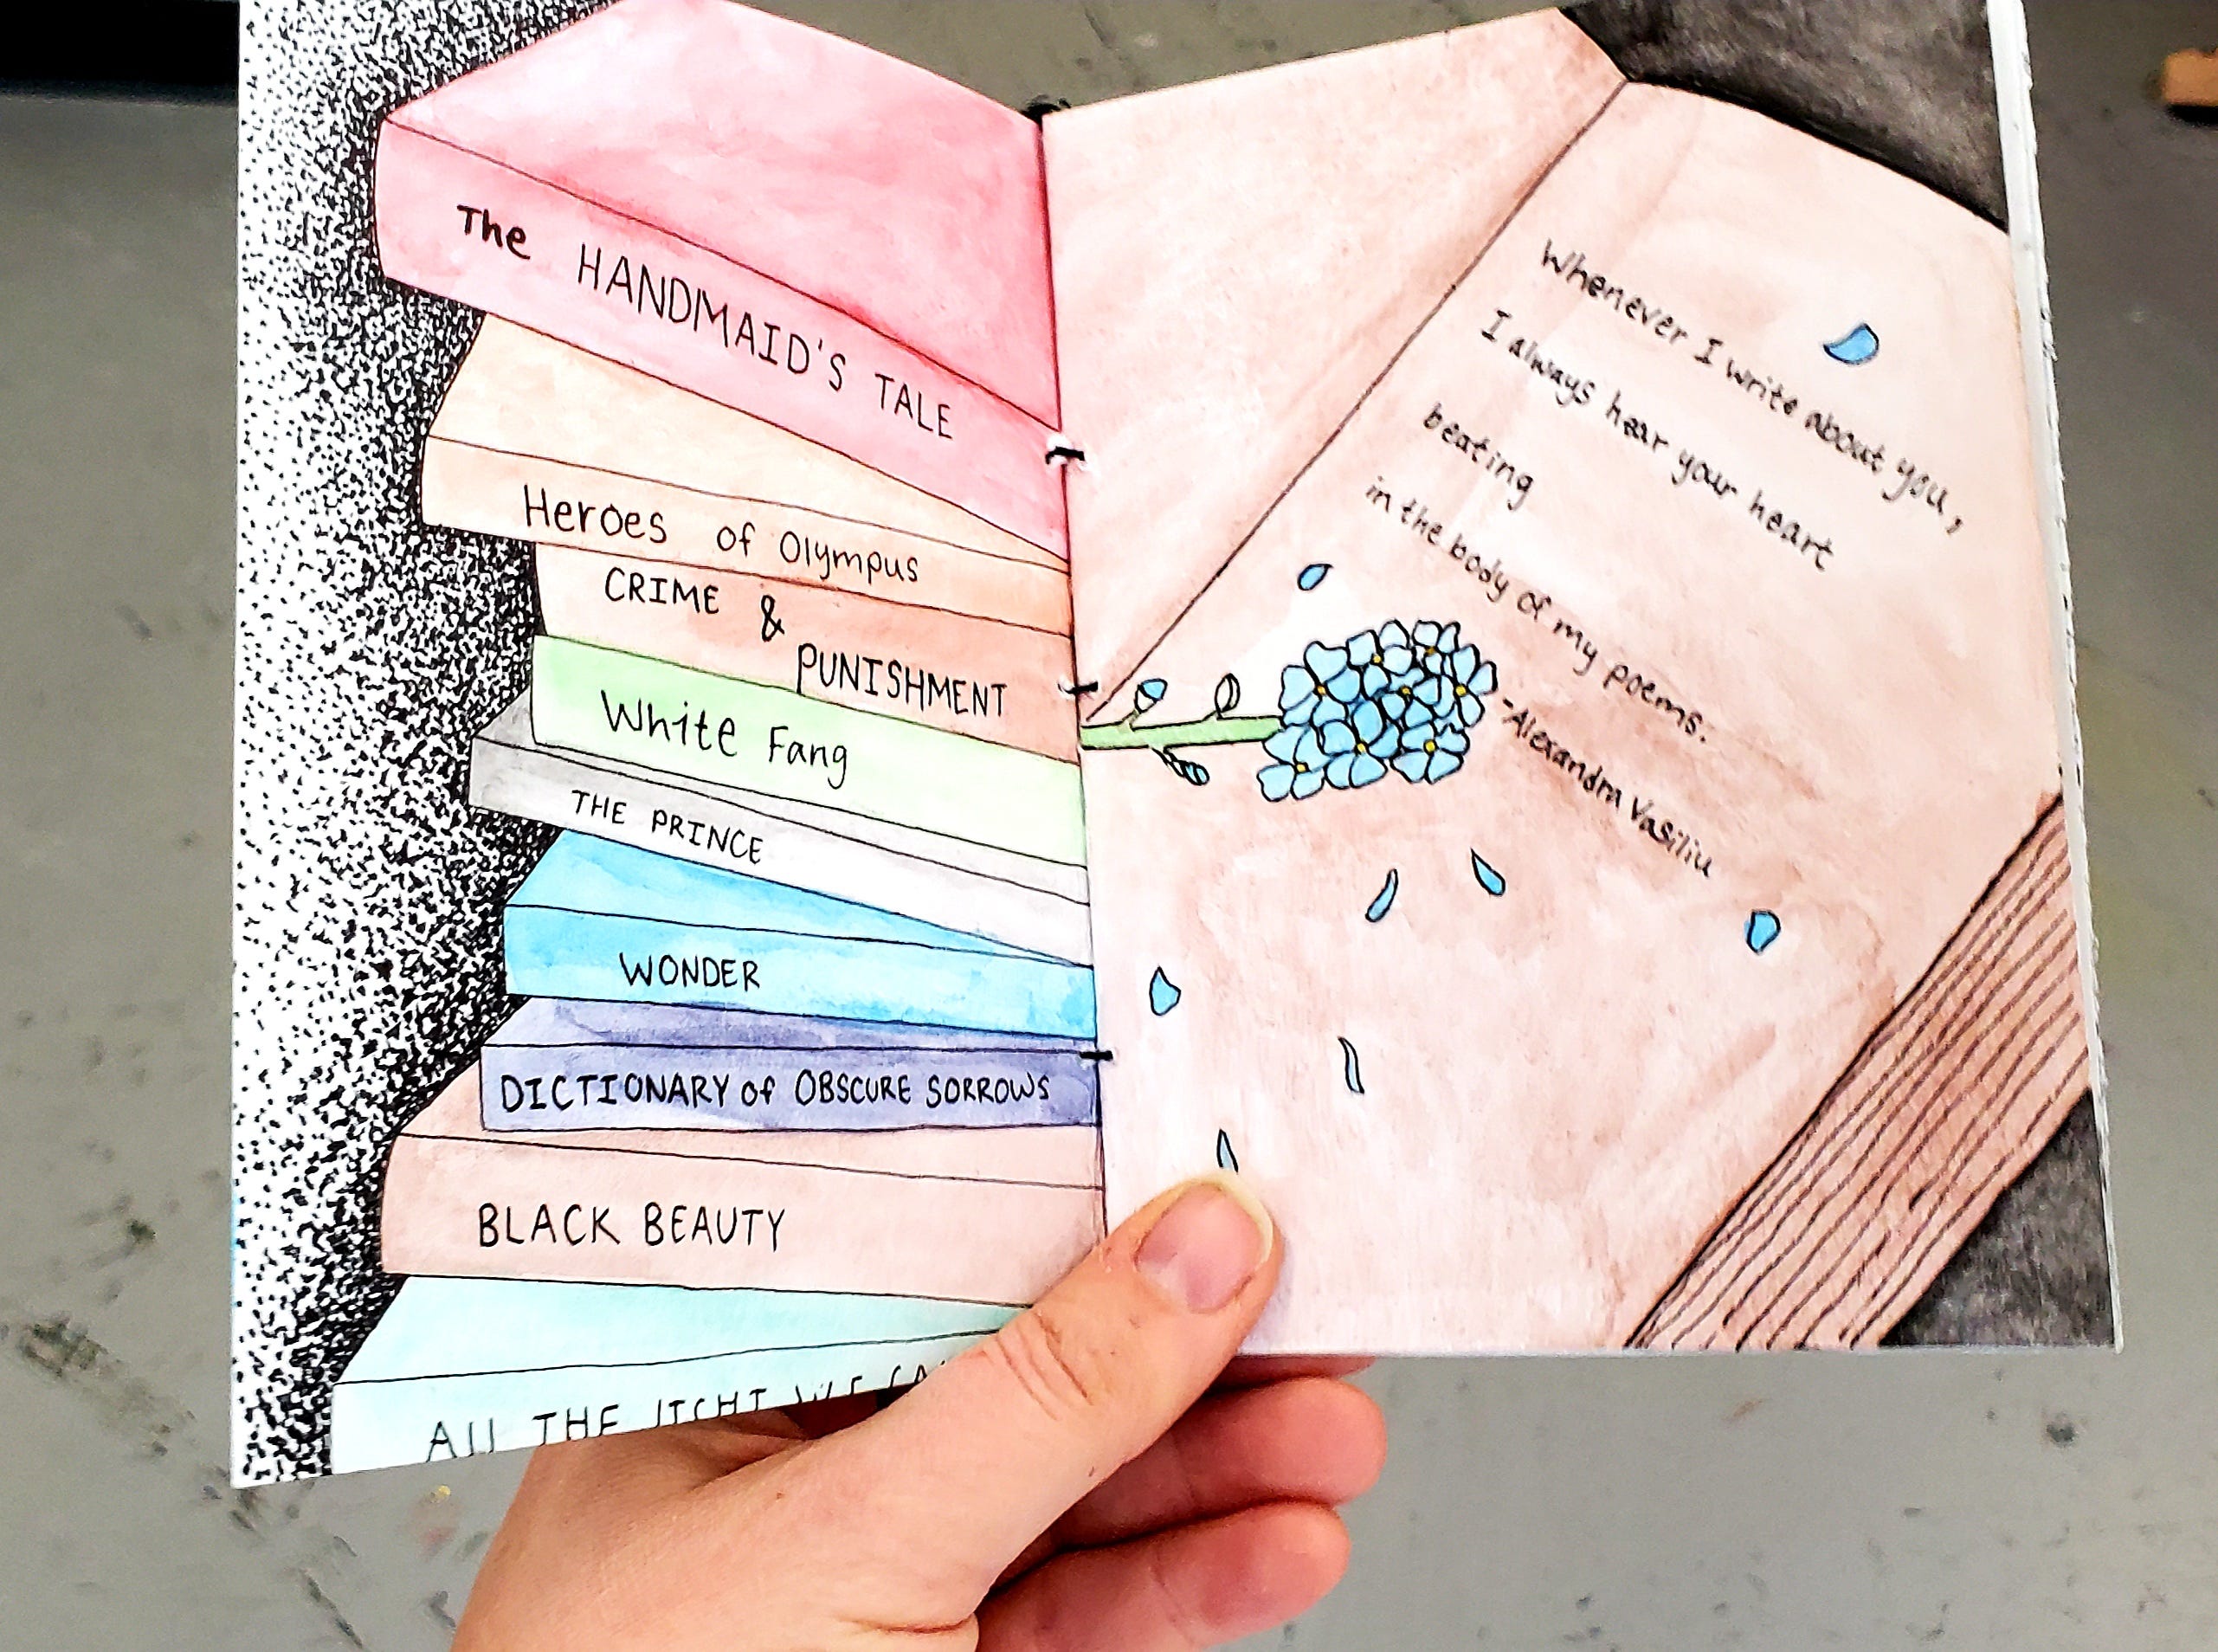 The HANDMAID'S TALE
Heroes of Olympus
CRIME &
PUNISHMENT
White Fang
THE PRINCE
WONDER
DICTIONARY of OBSCURE SORROWS
BLACK BEAUTY
ALL THE LIGHT WE
Whenever I write about you,
I always hear your heart
beating
in the body of my poems.
-Alexandra Vasiliu